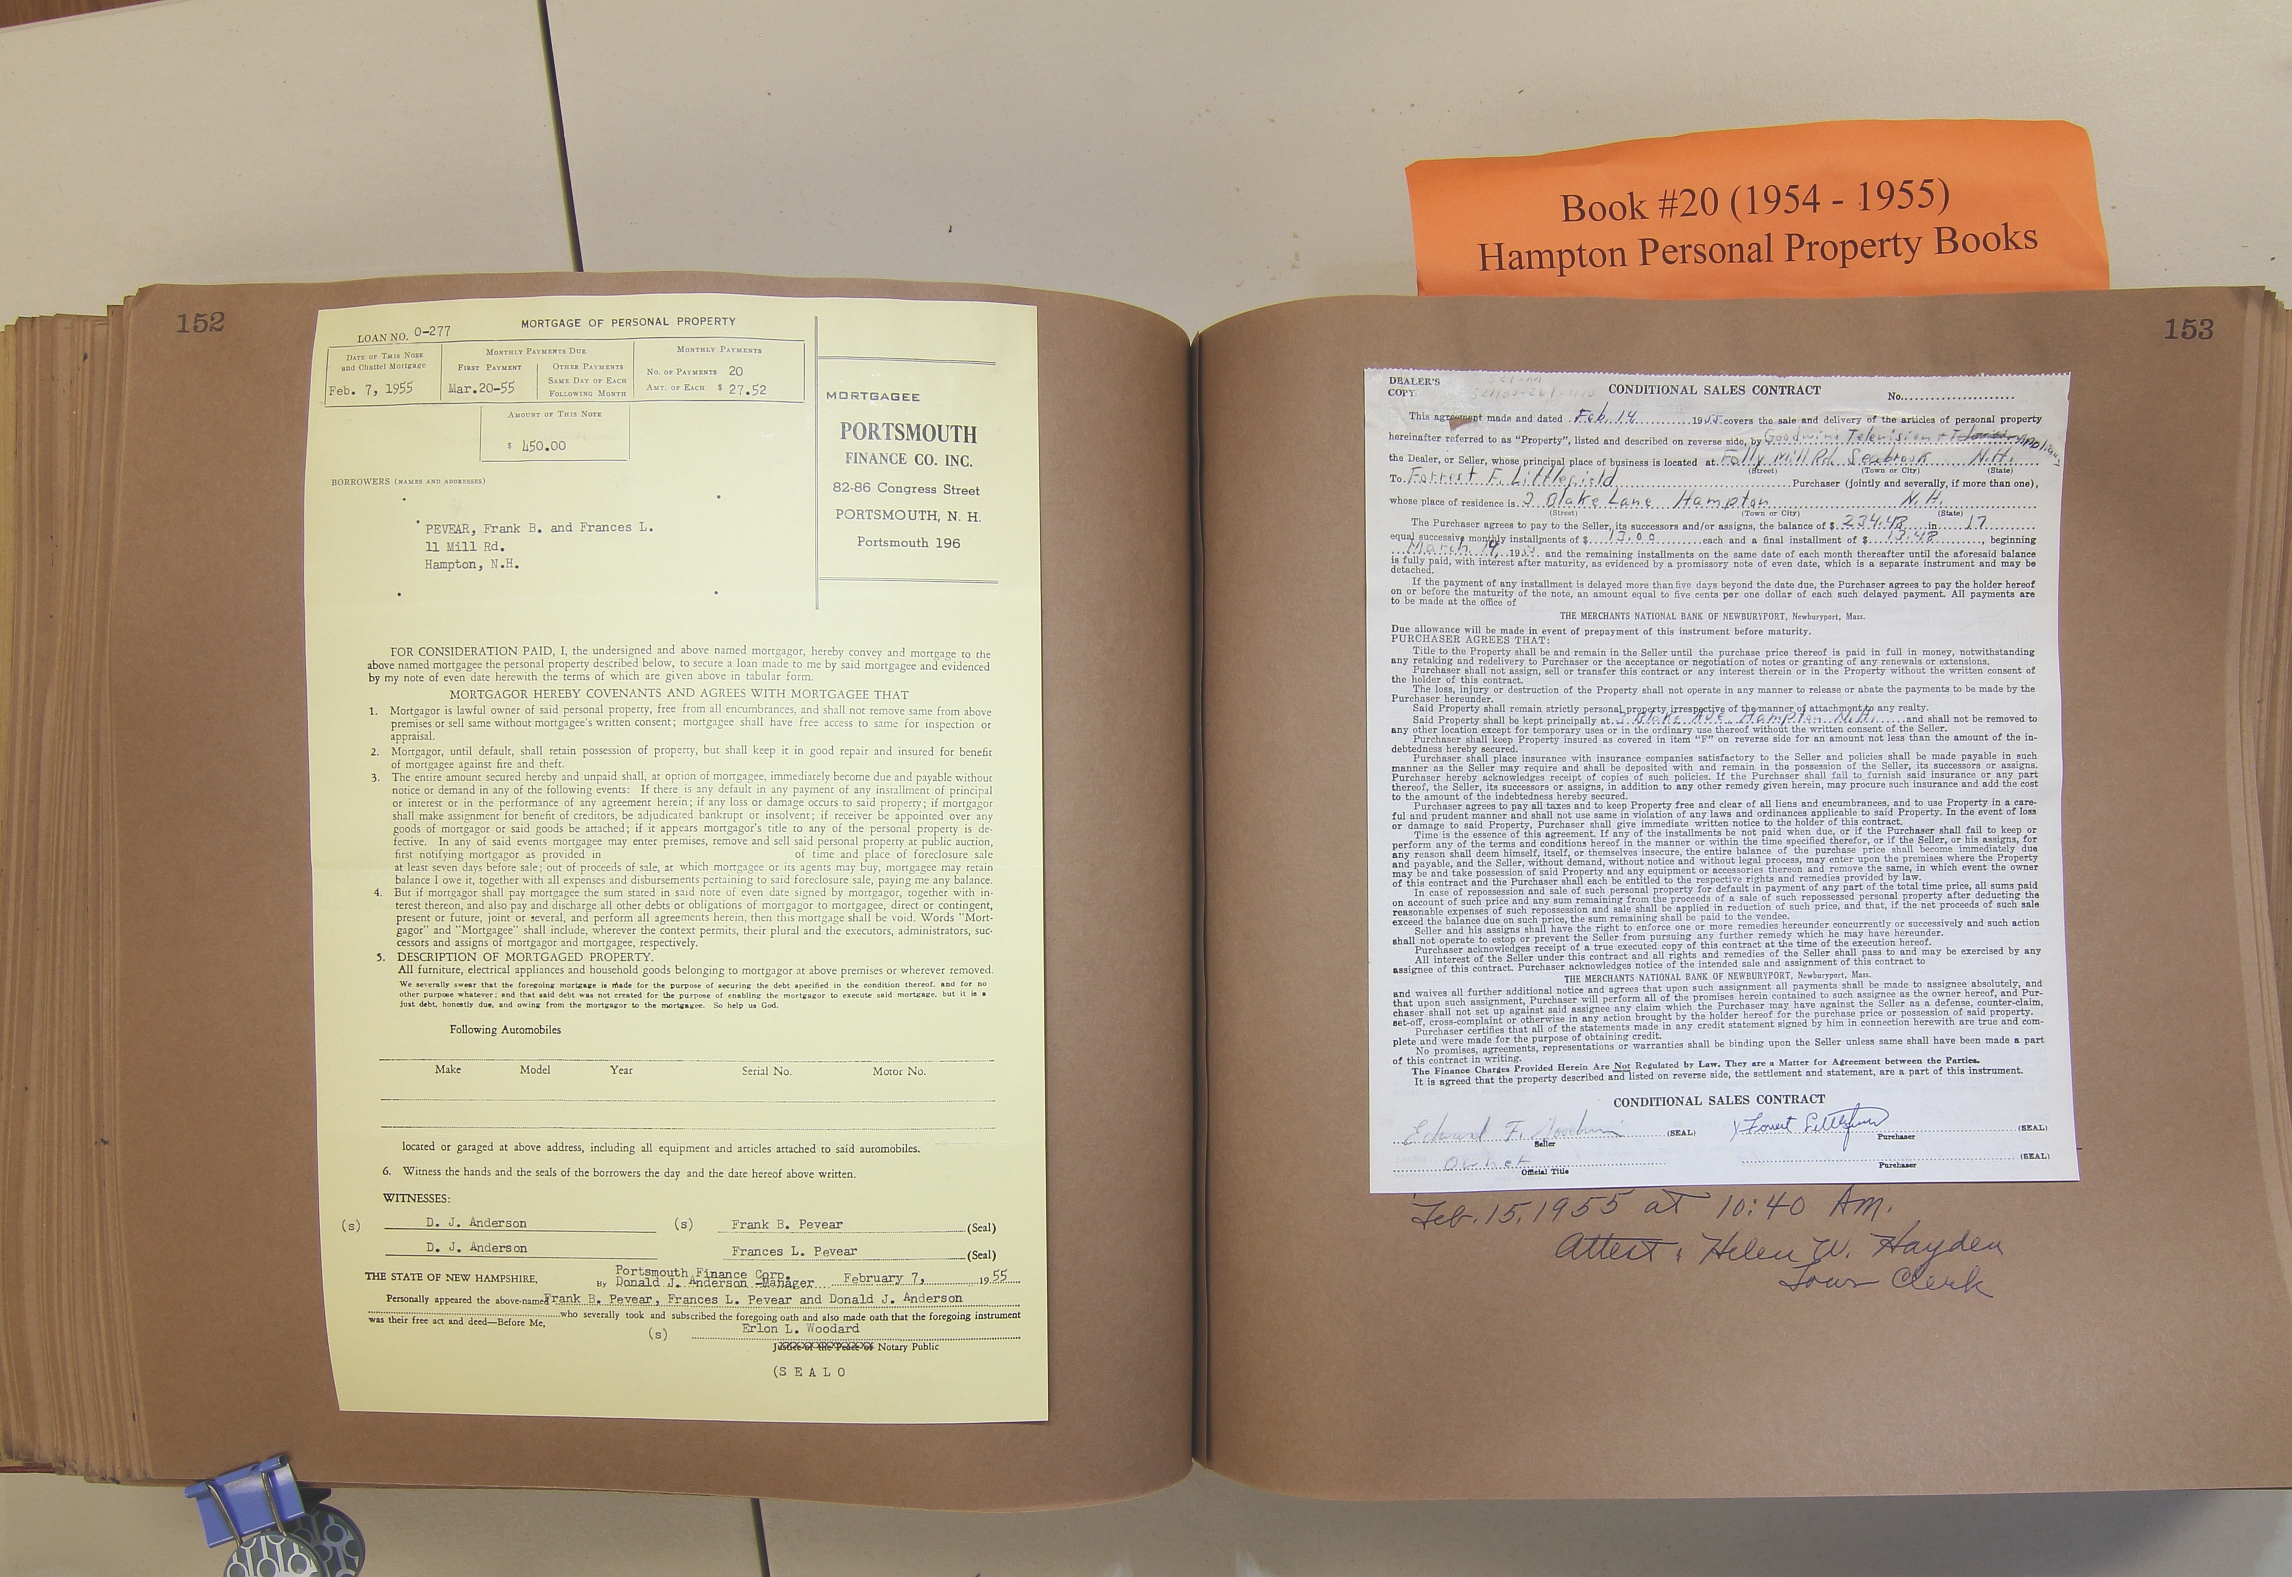 Book #20 (1954 - 1955)
Hampton Personal Property Books
152
LOAN NO. 0-277
MORTGAGE OF PERSONAL PROPERTY
DATE OF THIS NOTE
and Chattel Mortgage
Feb. 7, 1955
MONTHLY PAYMENTS DUE
FIRST PAYMENT
Mar.20-55
OTHER PAYMENTS
SAME DAY OF EACH
FOLLOWING MONTH
MONTHLY PAYMENTS
NO. OF PAYMENTS 20
AMT. OF EACH $ 27.52
AMOUNT OF THIS NOTE
$ 450.00
MORTGAGEE
PORTSMOUTH
FINANCE CO. INC.
82-86 Congress Street
PORTSMOUTH, N. H.
Portsmouth 196
BORROWERS (NAMES AND ADDRESSES)
PEVEAR, Frank B. and Frances L.
11 Mill Rd.
Hampton, N.H.
FOR CONSIDERATION PAID, I, the undersigned and above named mortgagor, hereby convey and mortgage to the
above named mortgagee the personal property described below, to secure a loan made to me by said mortgagee and evidenced
by my note of even date herewith the terms of which are given above in tabular form.
MORTGAGOR HEREBY COVENANTS AND AGREES WITH MORTGAGEE THAT
1. Mortgagor is lawful owner of said personal property, free from all encumbrances, and shall not remove same from above
premises or sell same without mortgagee's written consent; mortgagee shall have free access to same for inspection or
appraisal.
2. Mortgagor, until default, shall retain possession of property, but shall keep it in good repair and insured for benefit
of mortgagee against fire and theft.
3. The entire amount secured hereby and unpaid shall, at option of mortgagee, immediately become due and payable without
notice or demand in any of the following events: If there is any default in any payment of any installment of principal
or interest or in the performance of any agreement herein; if any loss or damage occurs to said property; if mortgagor
shall make assignment for benefit of creditors, be adjudicated bankrupt or insolvent; if receiver be appointed over any
goods of mortgagor or said goods be attached; if it appears mortgagor's title to any of the personal property is de-
fective. In any of said events mortgagee may enter premises, remove and sell said personal property at public auction,
first notifying mortgagor as provided in of time and place of foreclosure sale
at least seven days before sale; out of proceeds of sale, at which mortgagee or its agents may buy, mortgagee may retain
balance I owe it, together with all expenses and disbursements pertaining to said foreclosure sale, paying me any balance.
4. But if mortgagor shall pay mortgagee the sum stated in said note of even date signed by mortgagor, together with in-
terest thereon, and also pay and discharge all other debts or obligations of mortgagor to mortgagee, direct or contingent,
present or future, joint or several, and perform all agreements herein, then this mortgage shall be void. Words "Mort-
gagor" and "Mortgagee" shall include, wherever the context permits, their plural and the executors, administrators, suc-
cessors and assigns of mortgagor and mortgagee, respectively.
5. DESCRIPTION OF MORTGAGED PROPERTY.
All furniture, electrical appliances and household goods belonging to mortgagor at above premises or wherever removed.
We severally swear that the foregoing mortgage is made for the purpose of securing the debt specified in the condition thereof, and for no
other purpose whatever; and that said debt was not created for the purpose of enabling the mortgagor to execute said mortgage, but it is a
just debt, honestly due, and owing from the mortgagor to the mortgagee. So help us God.
Following Automobiles
Make Model Year Serial No. Motor No.
located or garaged at above address, including all equipment and articles attached to said automobiles.
6. Witness the hands and the seals of the borrowers the day and the date hereof above written.
WITNESSES:
(s) D. J. Anderson (s) Frank B. Pevear (Seal)
D. J. Anderson Frances L. Pevear (Seal)
Portsmouth Finance Corp.
THE STATE OF NEW HAMPSHIRE, By Donald J. Anderson -Manager February 7, 1955
Personally appeared the above-named Frank B. Pevear, Frances L. Pevear and Donald J. Anderson
who severally took and subscribed the foregoing oath and also made oath that the foregoing instrument
was their free act and deed—Before Me,
(s) Erlon L. Woodard
Justice of the Peace of Notary Public
(S E A L O
153
DEALER'S
COPY
CONDITIONAL SALES CONTRACT
No.
This agreement made and dated Feb. 14 1955 covers the sale and delivery of the articles of personal property
hereinafter referred to as "Property", listed and described on reverse side, by Goodwins Television +
the Dealer, or Seller, whose principal place of business is located at Folly Mill Rd. Seabrook N.H.
(Street) (Town or City) (State)
To Forrest F. Littlefield Purchaser (jointly and severally, if more than one),
whose place of residence is 3 Blake Lane Hampton N.H.
(Street) (Town or City) (State)
The Purchaser agrees to pay to the Seller, its successors and/or assigns, the balance of $ 234.48 in 17
equal successive monthly installments of $ 13.00 each and a final installment of $ 13.48, beginning
March 19, 1955 and the remaining installments on the same date of each month thereafter until the aforesaid balance
is fully paid, with interest after maturity, as evidenced by a promissory note of even date, which is a separate instrument and may be
detached.
If the payment of any installment is delayed more than five days beyond the date due, the Purchaser agrees to pay the holder hereof
on or before the maturity of the note, an amount equal to five cents per one dollar of each such delayed payment. All payments are
to be made at the office of
THE MERCHANTS NATIONAL BANK OF NEWBURYPORT, Newburyport, Mass.
Due allowance will be made in event of prepayment of this instrument before maturity.
PURCHASER AGREES THAT:
Title to the Property shall be and remain in the Seller until the purchase price thereof is paid in full in money, notwithstanding
any retaking and redelivery to Purchaser or the acceptance or negotiation of notes or granting of any renewals or extensions.
Purchaser shall not assign, sell or transfer this contract or any interest therein or in the Property without the written consent of
the holder of this contract.
The loss, injury or destruction of the Property shall not operate in any manner to release or abate the payments to be made by the
Purchaser hereunder.
Said Property shall remain strictly personal property irrespective of the manner of attachment to any realty.
Said Property shall be kept principally at Blake Ave. Hampton N.H. and shall not be removed to
any other location except for temporary uses or in the ordinary use thereof without the written consent of the Seller.
Purchaser shall keep Property insured as covered in item "F" on reverse side for an amount not less than the amount of the in-
debtedness hereby secured.
Purchaser shall place insurance with insurance companies satisfactory to the Seller and policies shall be made payable in such
manner as the Seller may require and shall be deposited with and remain in the possession of the Seller, its successors or assigns.
Purchaser hereby acknowledges receipt of copies of such policies. If the Purchaser shall fail to furnish said insurance or any part
thereof, the Seller, its successors or assigns, in addition to any other remedy given herein, may procure such insurance and add the cost
to the amount of the indebtedness hereby secured.
Purchaser agrees to pay all taxes and to keep Property free and clear of all liens and encumbrances, and to use Property in a care-
ful and prudent manner and shall not use same in violation of any laws and ordinances applicable to said Property. In the event of loss
or damage to said Property, Purchaser shall give immediate written notice to the holder of this contract.
Time is the essence of this agreement. If any of the installments be not paid when due, or if the Purchaser shall fail to keep or
perform any of the terms and conditions hereof in the manner or within the time specified therefor, or if the Seller, or his assigns, for
any reason shall deem himself, itself, or themselves insecure, the entire balance of the purchase price shall become immediately due
and payable, and the Seller, without demand, without notice and without legal process, may enter upon the premises where the Property
may be and take possession of said Property and any equipment or accessories thereon and remove the same, in which event the owner
of this contract and the Purchaser shall each be entitled to the respective rights and remedies provided by law.
In case of repossession and sale of such personal property for default in payment of any part of the total time price, all sums paid
on account of such price and any sum remaining from the proceeds of a sale of such repossessed personal property after deducting the
reasonable expenses of such repossession and sale shall be applied in reduction of such price, and that, if the net proceeds of such sale
exceed the balance due on such price, the sum remaining shall be paid to the vendee.
Seller and his assigns shall have the right to enforce one or more remedies hereunder concurrently or successively and such action
shall not operate to estop or prevent the Seller from pursuing any further remedy which he may have hereunder.
Purchaser acknowledges receipt of a true executed copy of this contract at the time of the execution hereof.
All interest of the Seller under this contract and all rights and remedies of the Seller shall pass to and may be exercised by any
assignee of this contract. Purchaser acknowledges notice of the intended sale and assignment of this contract to
THE MERCHANTS NATIONAL BANK OF NEWBURYPORT, Newburyport, Mass.
and waives all further additional notice and agrees that upon such assignment all payments shall be made to assignee absolutely, and
that upon such assignment, Purchaser will perform all of the promises herein contained to such assignee as the owner hereof, and Pur-
chaser shall not set up against said assignee any claim which the Purchaser may have against the Seller as a defense, counter-claim,
set-off, cross-complaint or otherwise in any action brought by the holder hereof for the purchase price or possession of said property.
Purchaser certifies that all of the statements made in any credit statement signed by him in connection herewith are true and com-
plete and were made for the purpose of obtaining credit.
No promises, agreements, representations or warranties shall be binding upon the Seller unless same shall have been made a part
of this contract in writing.
The Finance Charges Provided Herein Are Not Regulated by Law. They are a Matter for Agreement between the Parties.
It is agreed that the property described and listed on reverse side, the settlement and statement, are a part of this instrument.
CONDITIONAL SALES CONTRACT
Edward F. Goodwin (SEAL) x Forrest Littlefield (SEAL)
Seller Purchaser
Owner (SEAL)
Official Title Purchaser
Feb. 15, 1955 at 10:40 AM.
Attest: Helen W. Hayden
Town Clerk